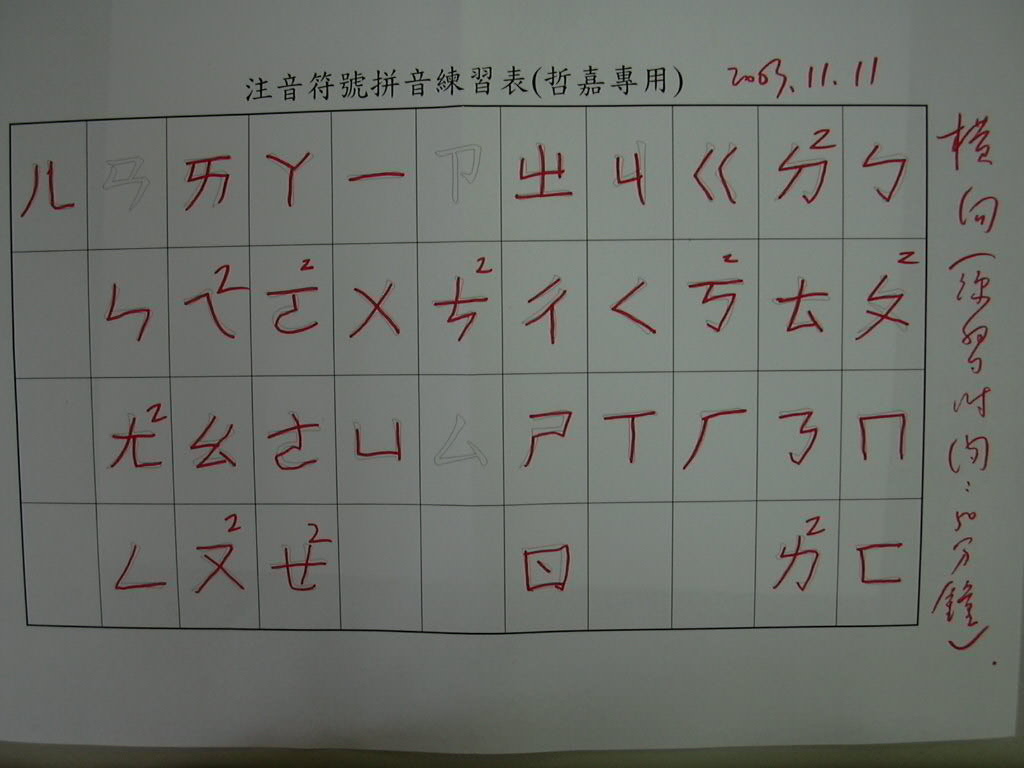 注音符號拼音練習表(哲嘉專用) 2003.11.11
ㄦ ㄢ ㄞ ㄚ 一 ㄗ ㄓ ㄐ ㄍ ㄉ2 ㄅ
ㄣ ㄟ2 ㄛ2 ㄨ ㄘ2 ㄔ ㄑ ㄎ2 ㄊ ㄆ2
ㄤ2 ㄠ ㄜ ㄩ ㄙ ㄕ ㄒ ㄏ ㄋ ㄇ
ㄥ ㄡ2 ㄝ2 ㄖ ㄌ2 ㄈ
橫向(練習时间:50分鐘).